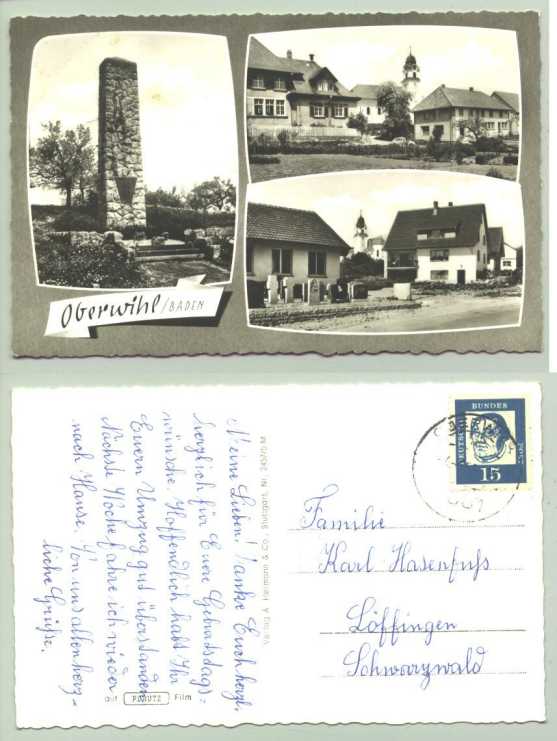 Oberwihl/BADEN
Meine Lieben! Danke Euch herzl.
herzlich für Eure Geburtstags-
wünsche. Hoffendlich habt Ihr
Euern Umzug gut überstanden
Nächste Woche fahre ich wieder
nach Hause. Von uns allen herz-
liche Grüße.
auf POSUTZ Film
Stuttgart, Nr.
DEUTSCHE
BUNDES
POST
15
Familie
Karl Hasenfuß
Löffingen
Schwarzwald